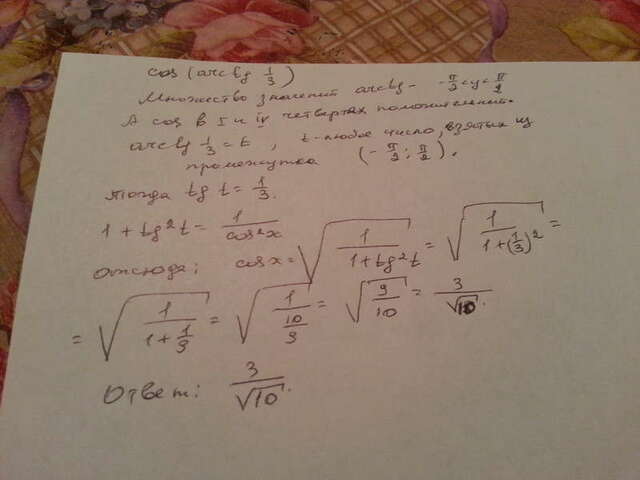 cos (arctg 1/3)
Множество значений arctg - -π/2<y<π/2
А cos в I и IV четвертях положительный.
arctg 1/3 = t, t-любое число, взятых из
промежутка (-π/2; π/2).
Тогда tg t = 1/3.
1 + tg²t = 1/cos²x
Отсюда: cosx = √(1/(1+tg²t)) = √(1/(1+(1/3)²)) =
= √(1/(1+1/9)) = √(1/(10/9)) = √(9/10) = 3/√10.
Ответ: 3/√10.